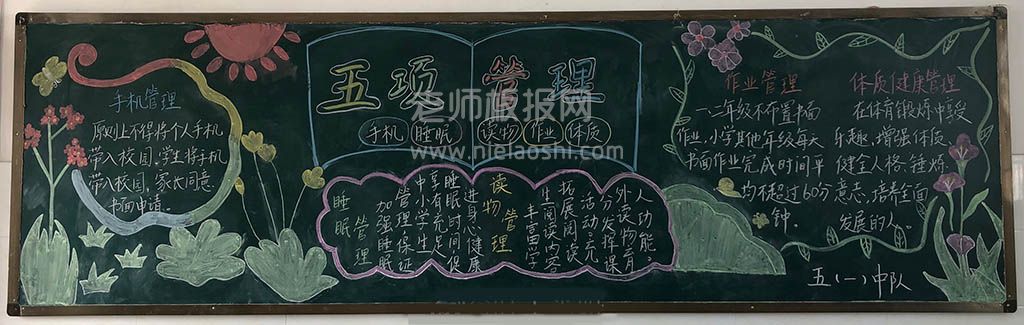 五项管理
手机 睡眠 读物 作业 体质
老师板报网
www.nielaoshi.com
手机管理
原则上不得将个人手机
带入校园。学生将手机
带入校园,家长同意
书面申请。
睡眠管理
加强睡眠
管理保证
中小学生
享有充足
睡眠时间促
进身心健康
读物管理
丰富学
生阅读内容
拓展阅读
活动充
分发挥课
外读物育
人功能。
作业管理
一、二年级不布置书面
作业,小学其他年级每天
书面作业完成时间平
均不超过60分
钟。
体质健康管理
在体育锻炼中享受
乐趣,增强体质
健全人格、锤炼
意志,培养全面
发展的人。
五(一)中队